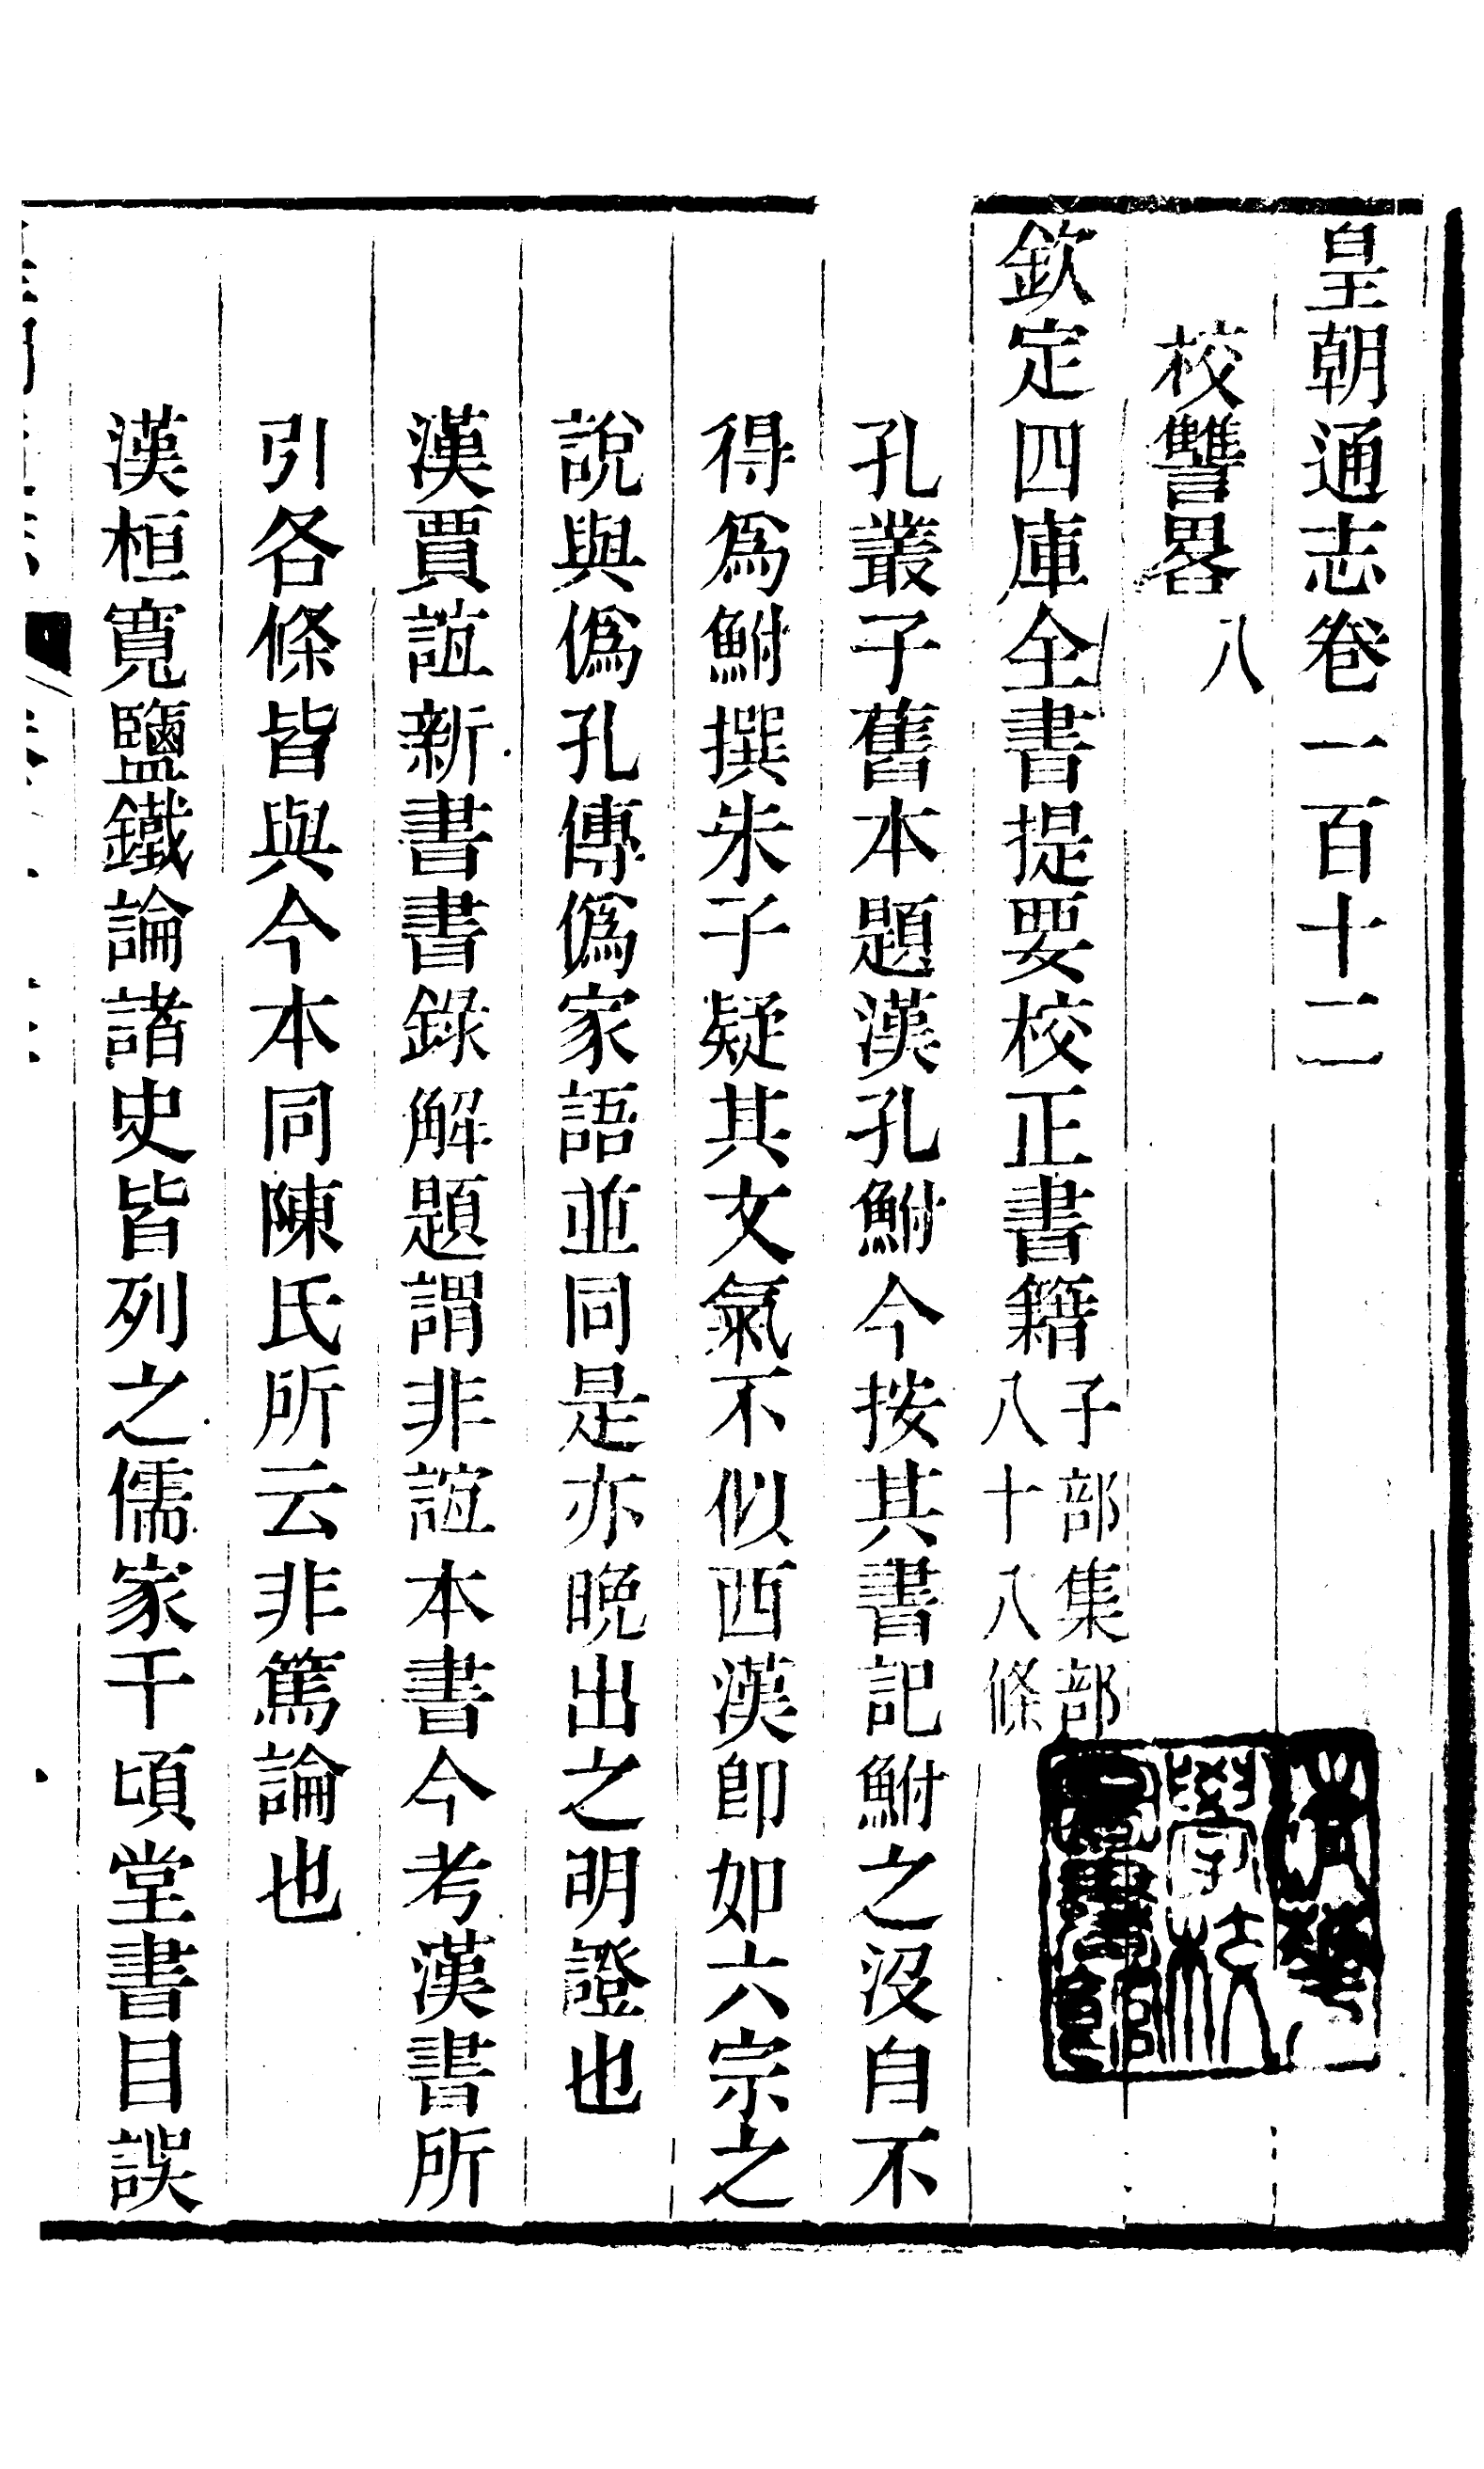 皇朝通志卷一百十二
校讐畧八
欽定四庫全書提要校正書籍子部集部八十八條
孔叢子舊本題漢孔鮒今按其書記鮒之沒自不
得爲鮒撰朱子疑其文氣不似西漢卽如六宗之
說與僞孔傳僞家語並同是亦晚出之明證也
漢賈誼新書書錄解題謂非誼本書今考漢書所
引各條皆與今本同陳氏所云非篤論也
漢桓寬鹽鐵論諸史皆列之儒家千頃堂書目誤
清華學校圖書館